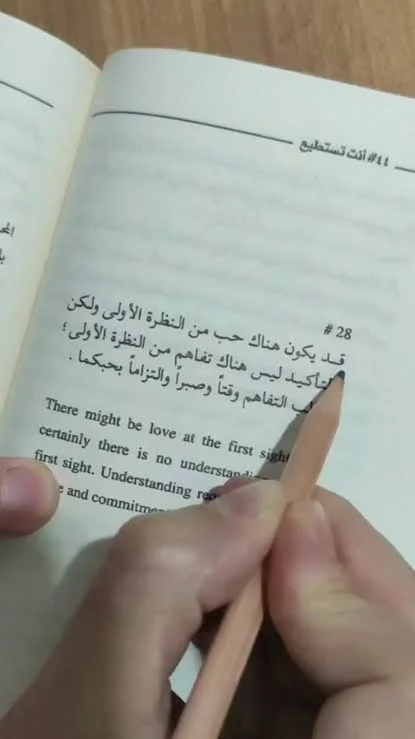 #٤٤ أنت تستطيع
# 28
قد يكون هناك حب من النظرة الأولى ولكن
ليس هناك تفاهم من النظرة الأولى؛
التفاهم وقتاً وصبراً والتزاماً بحبكما .
There might be love at the first sight
certainly there is no
first sight. Understanding
and